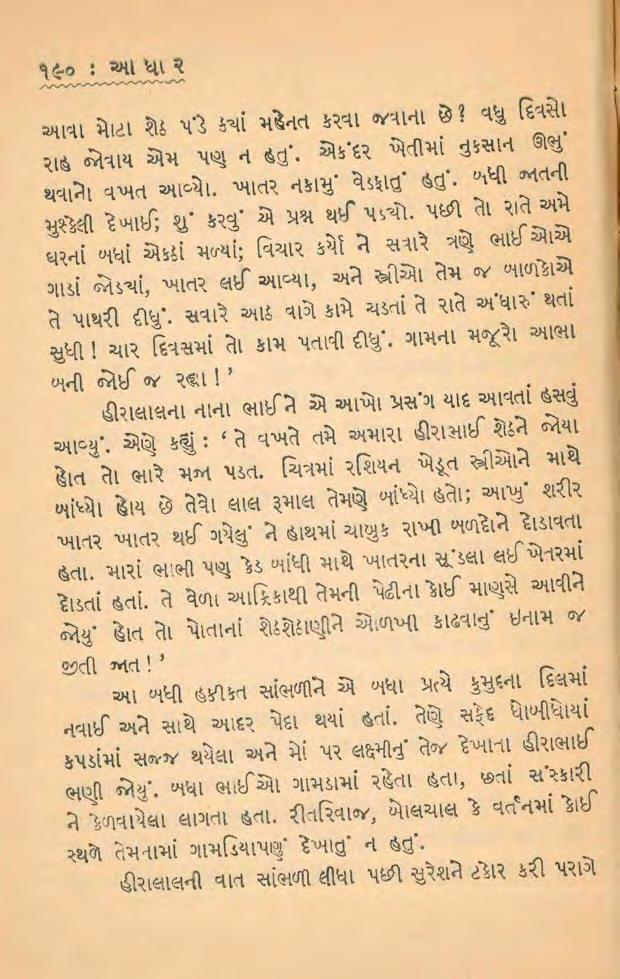 ૧૯૦ : આ ધા ર
આવા મોટા શેઠ પંડે કયાં મહેનત કરવા જવાના છે? વધુ દિવસો
રાહ જોવાય એમ પણ ન હતું. એકંદર ખેતીમાં નુકસાન ઊભું
થવાનો વખત આવ્યો. ખાતર નકામું વેડફાતું હતું. બધી જાતની
મુશ્કેલી દેખાઈ; શું કરવું એ પ્રશ્ન થઈ પડ્યો. પછી તો રાતે અમે
ઘરનાં બધાં એકઠાં મળ્યાં; વિચાર કર્યો ને સવારે ત્રણે ભાઈઓએ
ગાડાં જોડ્યાં, ખાતર લઈ આવ્યા, અને સ્ત્રીઓ તેમ જ બાળકોએ
તે પાથરી દીધું. સવારે આઠ વાગે કામે ચડતાં તે રાતે અંધારું થતાં
સુધી! ચાર દિવસમાં તો કામ પતાવી દીધું. ગામના મજૂરો આભા
બની જોઈ જ રહ્યા!’
હીરાલાલના નાના ભાઈને એ આખો પ્રસંગ યાદ આવતાં હસવું
આવ્યું. એણે કહ્યું : ‘તે વખતે તમે અમારા હીરાભાઈ શેઠને જોયા
હોત તો ભારે મજા પડત. ચિત્રમાં રશિયન ખેડૂત સ્ત્રીઓને માથે
બાંધ્યો હોય છે તેવો લાલ રૂમાલ તેમણે બાંધ્યો હતો; આખું શરીર
ખાતર ખાતર થઈ ગયેલું ને હાથમાં ચાબુક રાખી બળદોને દોડાવતા
હતા. મારાં ભાભી પણ કેડ બાંધી માથે ખાતરના સૂંડલા લઈ ખેતરમાં
દોડતાં હતાં. તે વેળા આફ્રિકાથી તેમની પેઢીના કોઈ માણસે આવીને
જોયું હોત તો પોતાનાં શેઠશેઠાણીને ઓળખી કાઢવાનું ઇનામ જ
જીતી જાત!’
આ બધી હકીકત સાંભળીને એ બધા પ્રત્યે કુમુદના દિલમાં
નવાઈ અને સાથે આદર પેદા થયાં હતાં. તેણે સફેદ ધોબીધોયાં
કપડાંમાં સજ્જ થયેલા અને મોં પર લક્ષ્મીનું તેજ દેખાતા હીરાભાઈ
ભણી જોયું. બધા ભાઈઓ ગામડામાં રહેતા હતા, છતાં સંસ્કારી
ને કેળવાયેલા લાગતા હતા. રીતરિવાજ, બોલચાલ કે વર્તનમાં કોઈ
સ્થળે તેમનામાં ગામડિયાપણું દેખાતું ન હતું.
હીરાલાલની વાત સાંભળી લીધા પછી સુરેશને ટકોર કરી પરાગે